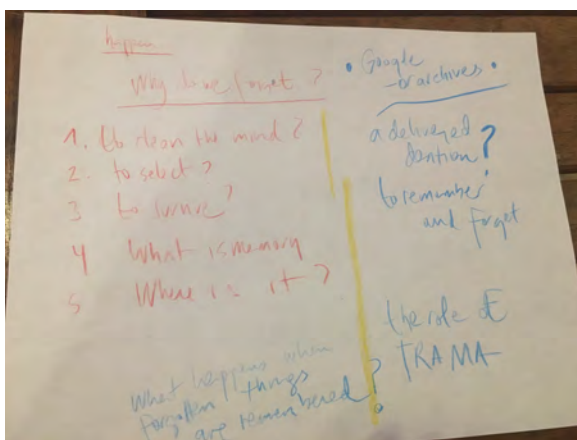 happen
Why do we forget?
1. to clean the mind?
2. to select?
3 to survive?
4 What is memory
5 Where is it?
What happens when
forgotten things
are remembered?
• Google •
- or archives
a delivered
?
to remember
and forget
the role of
TRAMA